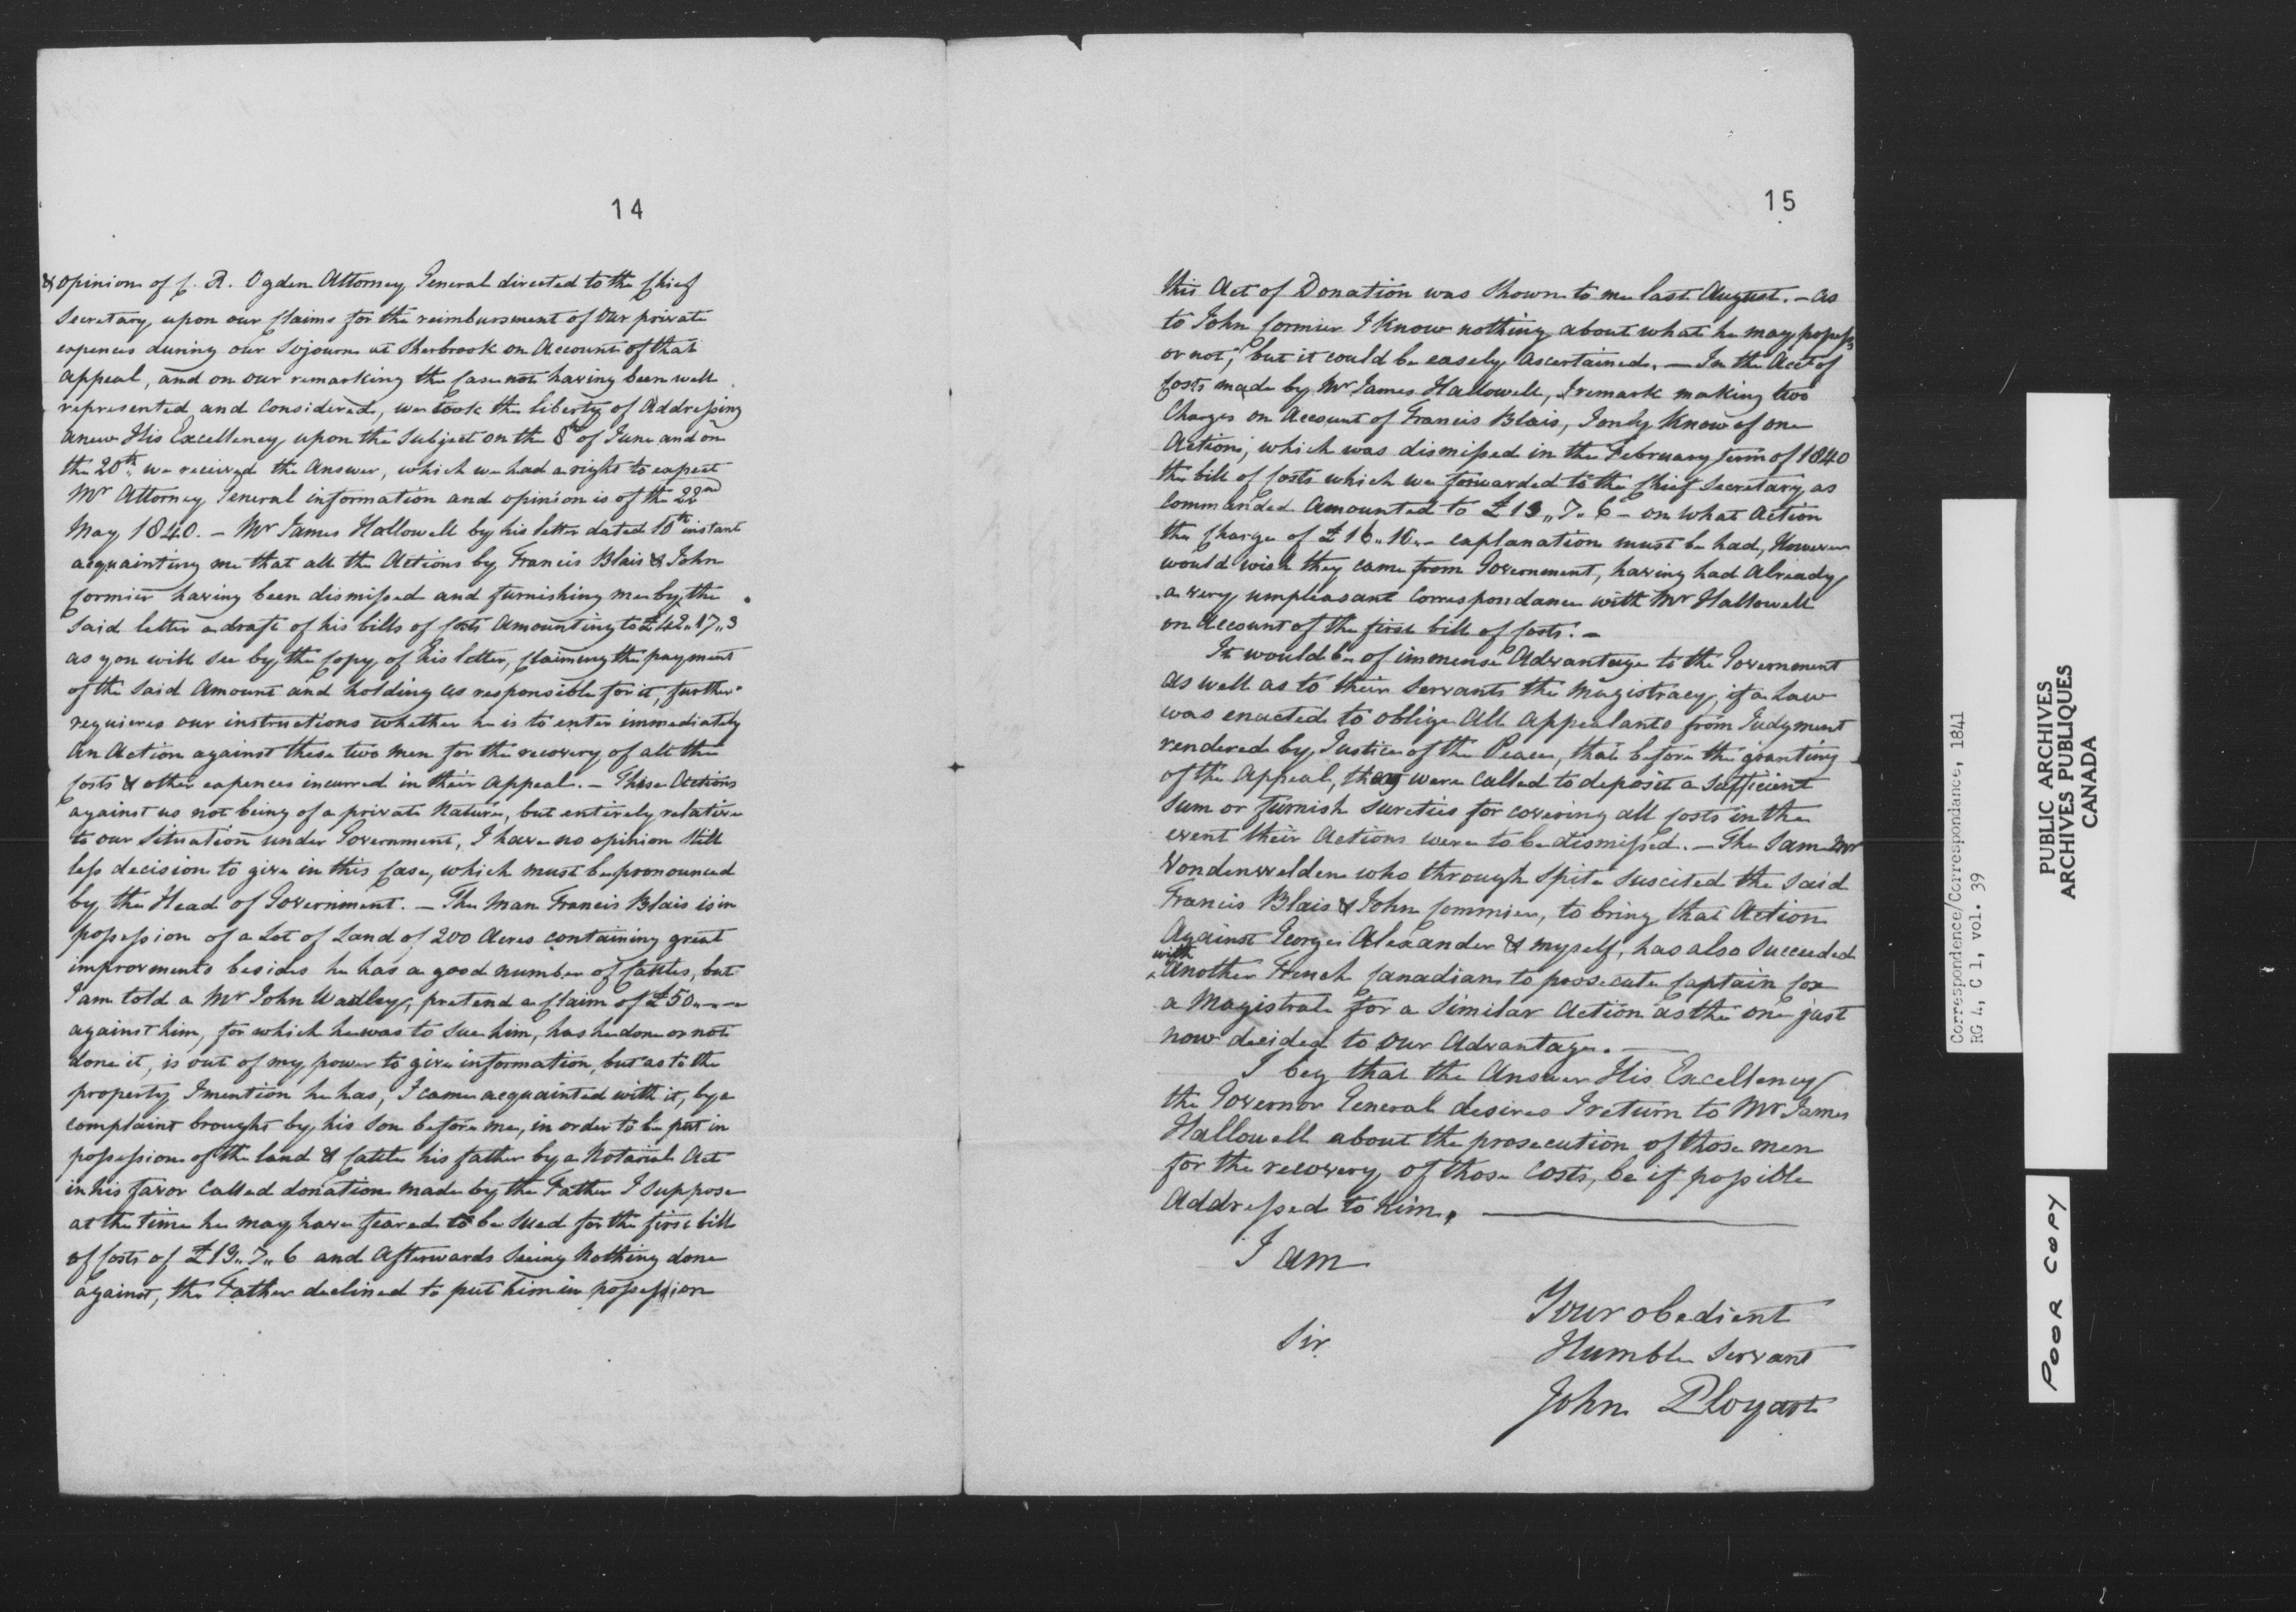 14
& opinion of C. R. Ogden Attorney General directed to the Chief
Secretary, upon our Claims for the reimbursment of our private
expences during our Sojourn at Sherbrook on Account of that
appeal, and on our remarking the Case not having been well
represented and Considered, we took the liberty of Addressing
anew His Excellency upon the Subject on the 8th of June and on
the 20th. we received the Answer, which we had a right to expect
Mr Attorney General information and opinion is of the 22nd
May 1840. - Mr James Hallowell by his letter dated 10th instant
acquainting me that all the Actions by Francis Blais & John
Cormier having been dismissed and furnishing me by the
Said letter a draft of his bills of Costs Amounting to £42,,17,,3
as you will see by the Copy of his letter, Claiming the payment
of the said Amount and holding us responsible for it, further
requieres our instructions whether he is to enter immediately
an Action against these two men for the recovery of all the
Costs & other expences incurred in their Appeal. - These Actions
against us not being of a private Nature, but entirely relative
to our Situation under Government, I have no opinion Still
less decision to give in this Case, which must be pronounced
by the Head of Government. - The Man Francis Blais is in
possession of a Lot of Land of 200 Acres containing great
improvments besides he has a good number of Cattles, but
I am told a Mr John Wadley, pretend a Claim of £50,,-,,-
against him, for which he was to sue him, has he done or not
done it, is out of my power to give information, but as to the
property I mention he has, I came acquainted with it, by a
complaint brought by his Son before me, in order to be put in
possession of the land & Cattle his father by a Notarial Act
in his favor Called donation made by the Father I Suppose
at the time he may have feared to be Sued for the first bill
of Costs of £13,,7,,6 and Afterwards Seeing Nothing done
against, the Father declined to put him in possession
15
this Act of Donation was Shown to me last August. - as
to John Cormier I Know nothing about what he may possess
or not, but it could be easely Ascertained. - In the Acct of
Costs made by Mr James Hallowell, I remark making two
Charges on Account of Francis Blais, I only Know of one
Action, which was dismissed in the February Term of 1840
the bill of Costs which we forwarded to the Chief Secretary as
Commanded Amounted to £13,,7,,6 - on what Action
the Charge of £16,,16,,- explanation must be had, However
would wish they came from Governement, having had Already
a very umpleasant Correspondance with Mr Hallowell
on Account of the first bill of Costs. -
It would be of immense Advantage to the Government
as well as to their Servants the Magistracy, if a Law
was enacted to oblige All Appealants from Judgment
rendered by Justice of the Peace, that before the granting
of the Appeal, they were Called to deposit a sufficient
Sum or furnish Sureties for covering all Costs in the
event their Actions were to be dismissed. - The Same Mr
Vondenvelden who through Spite Suscited the Said
Francis Blais & John Commier, to bring that Action
Against Georges Alexander & myself, has also Succeeded
with
Another French Canadian to prosecute Captain Cox
a Magistrate for a Similar Action as the one just
now decided to our Advantage. -
I beg that the Answer His Excellency
the Governor General desires I return to Mr James
Hallowell about the prosecution of those men
for the recovery of those Costs, be if possible
Addressed to him. -
I am
Sir
Your obedient
Humble Servant
John Ployart
Correspondence/Correspondance, 1841
RG 4, C 1, vol. 39
PUBLIC ARCHIVES
ARCHIVES PUBLIQUES
CANADA
POOR COPY